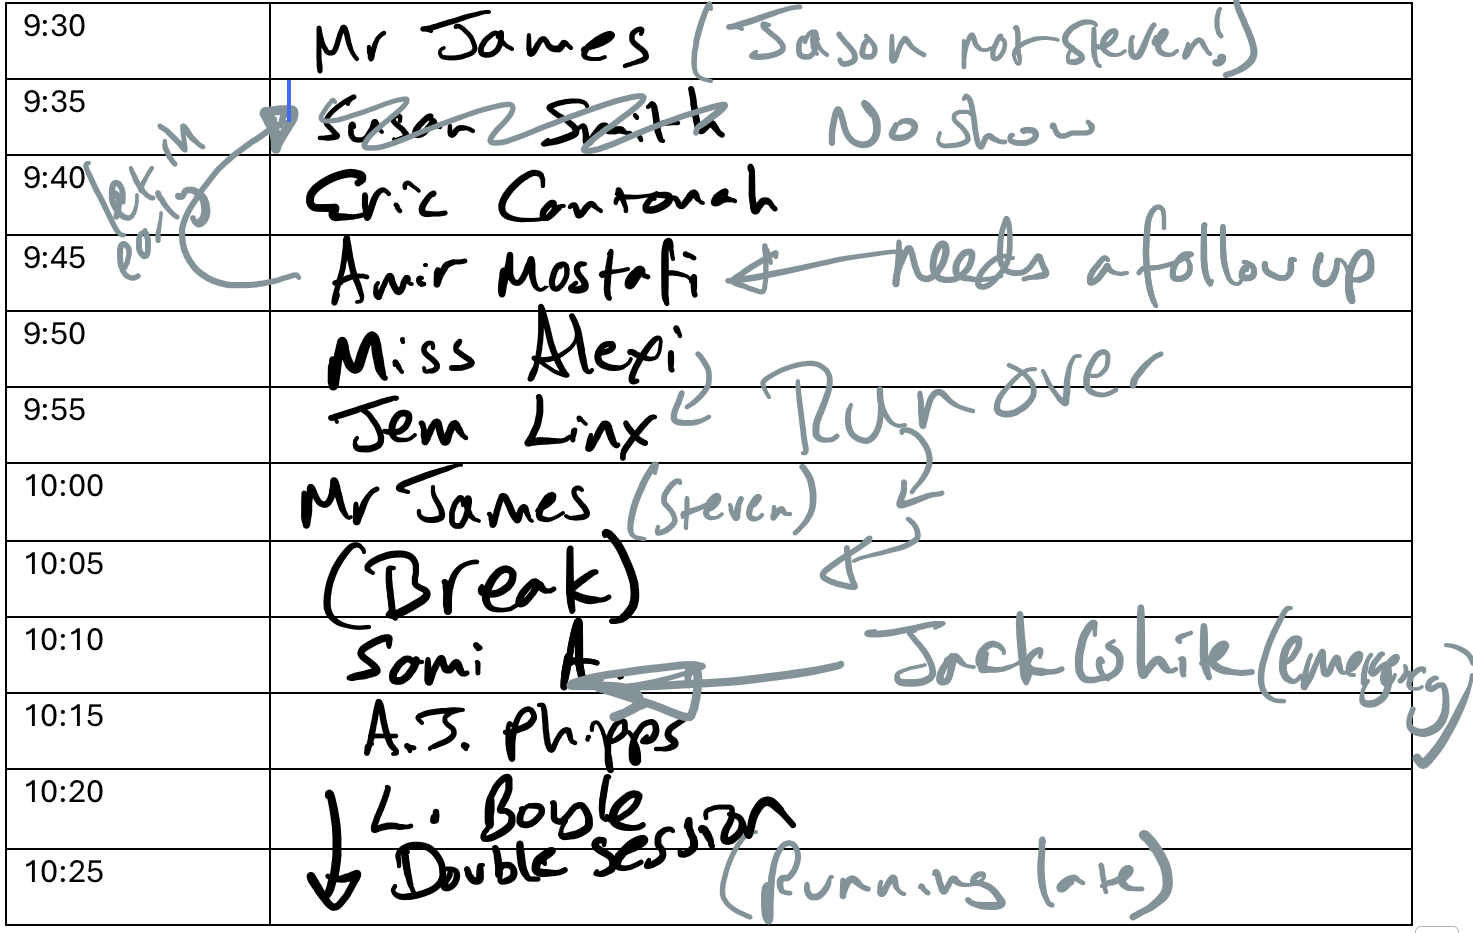 9:30 Mr James (Jason not Steven!)
9:35 Susan Smith No Show
let in
early
9:40 Eric Cantonah
9:45 Amir Mostafi needs a follow up
9:50 Miss Alexi
Run over
9:55 Jem Linx
10:00 Mr James (Steven)
10:05 (Break)
10:10 Somi A. Jack Whik (emergency)
10:15 A.J. Phipps
10:20 L. Boyle
Double session
10:25 (Running late)